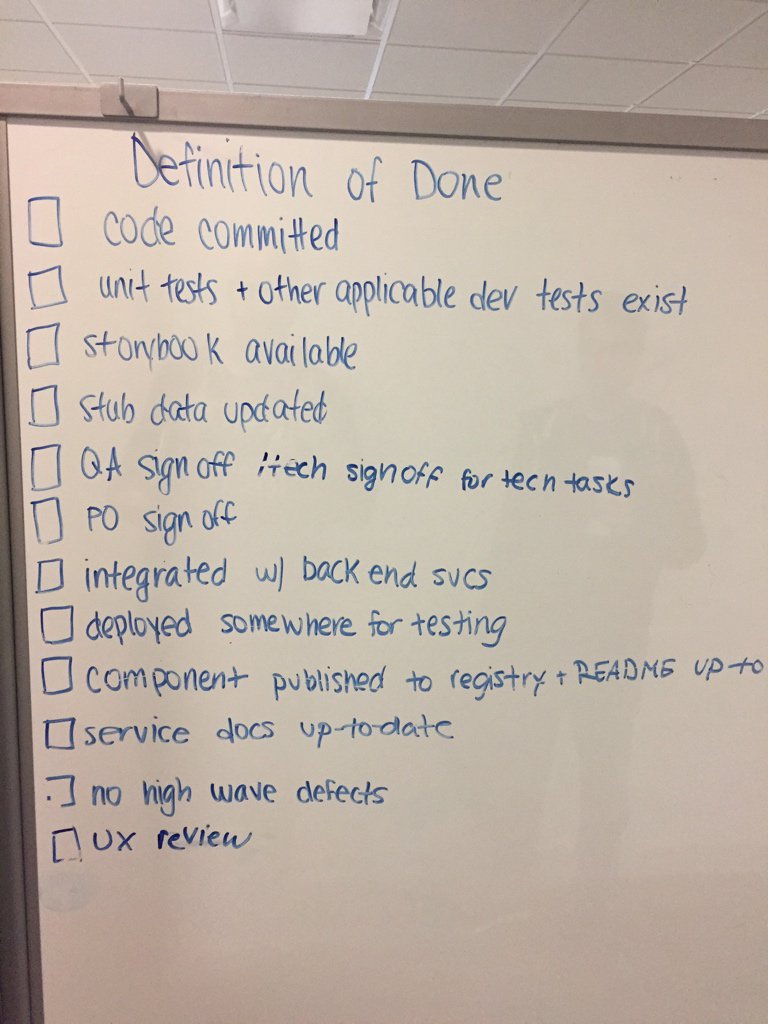 Definition of Done
code committed
unit tests + other applicable dev tests exist
storybook available
stub data updated
QA sign off ; tech sign off for tech tasks
PO sign off
integrated w/ back end svcs
deployed somewhere for testing
component published to registry + README up-to
service docs up-to-date
no high wave defects
UX review